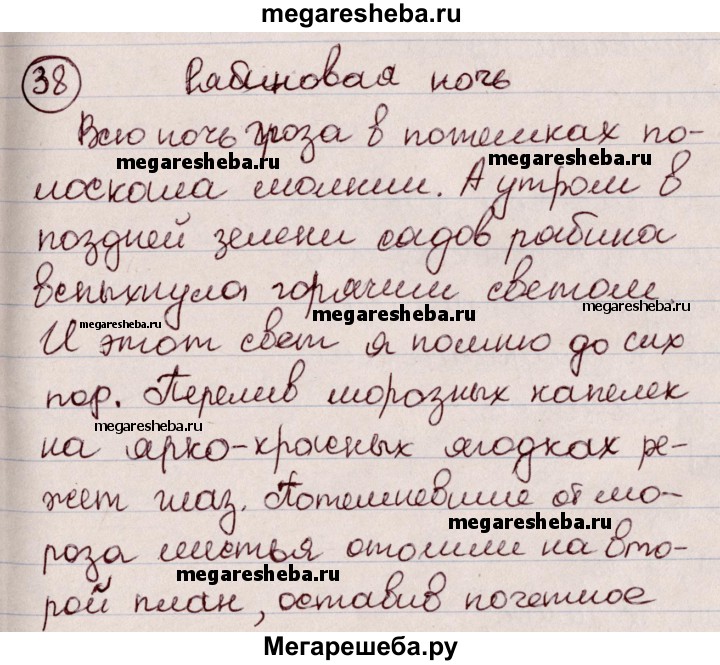 megaresheba.ru
38 Рабиновая ночь
Всю ночь гроза в потемках по-
megaresheba.ru megaresheba.ru
лоскала молнии. А утром в
поздней зелени садов рабина
вспыхнула горячим светом.
megaresheba.ru
megaresheba.ru
megaresheba.ru
И этот свет я помню до сих
пор. Перелив морозных капелек
megaresheba.ru
на ярко-красных ягодках ре-
жет глаз. Потемневшие от мо-
megaresheba.ru
роза листья отошли на вто-
megaresheba.ru
рой план, оставив почетное
Мегарешеба.ру